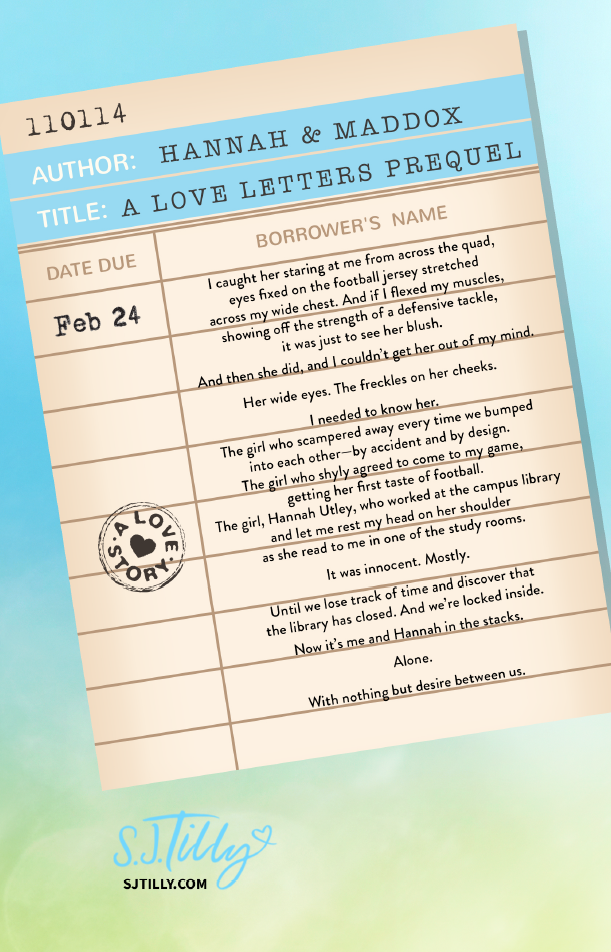 110114
AUTHOR: HANNAH & MADDOX
TITLE: A LOVE LETTERS PREQUEL
DATE DUE
BORROWER'S NAME
Feb 24
I caught her staring at me from across the quad,
eyes fixed on the football jersey stretched
across my wide chest. And if I flexed my muscles,
showing off the strength of a defensive tackle,
it was just to see her blush.
And then she did, and I couldn't get her out of my mind.
Her wide eyes. The freckles on her cheeks.
I needed to know her.
The girl who scampered away every time we bumped
into each other—by accident and by design.
The girl who shyly agreed to come to my game,
getting her first taste of football.
The girl, Hannah Utley, who worked at the campus library
and let me rest my head on her shoulder
as she read to me in one of the study rooms.
It was innocent. Mostly.
Until we lose track of time and discover that
the library has closed. And we're locked inside.
Now it's me and Hannah in the stacks.
Alone.
With nothing but desire between us.
·A LOVE·
STORY
S.J. Tilly
SJTILLY.COM